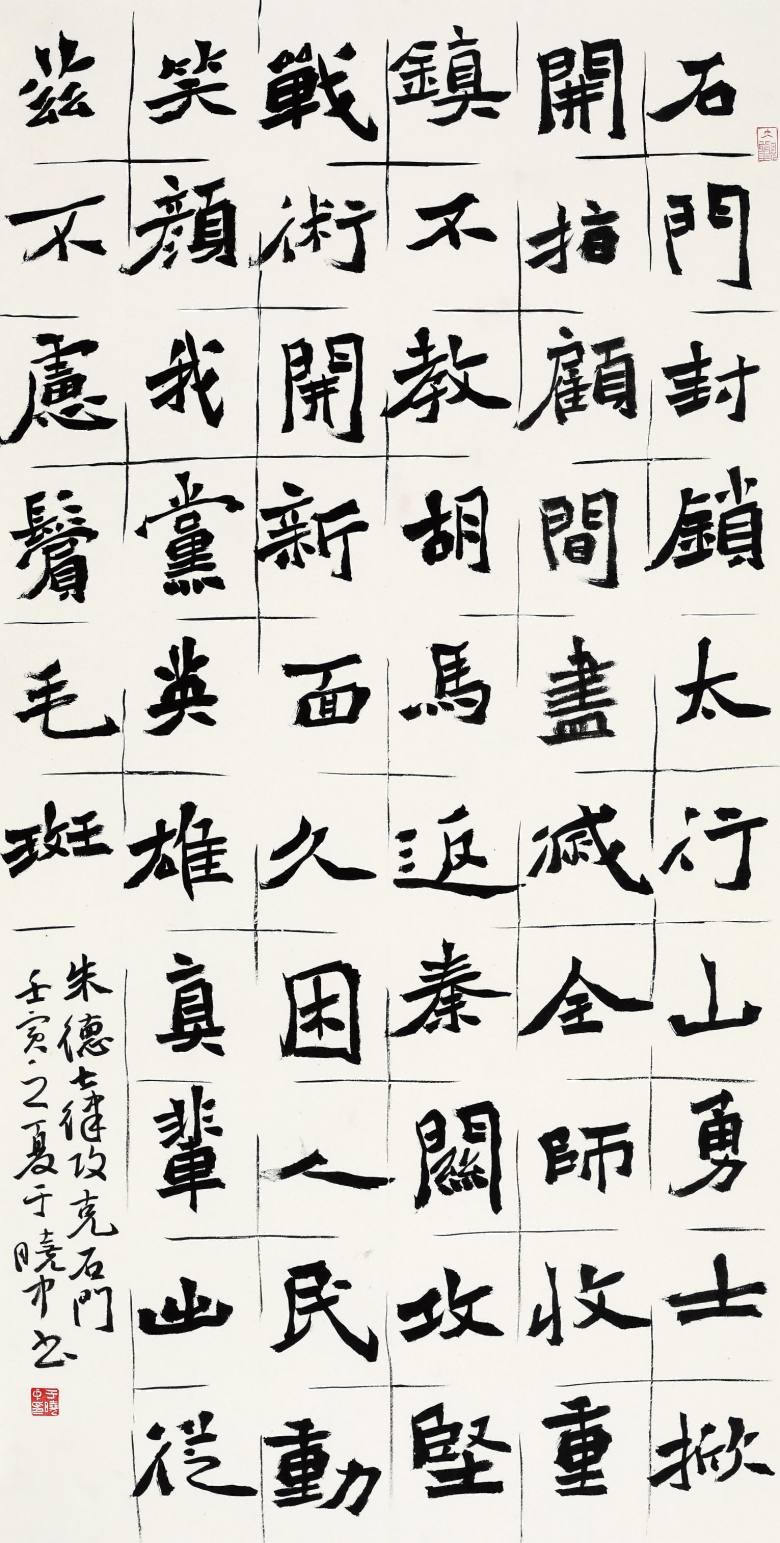 石門封鎖太行山勇士掀
開指顧間盡滅全師收重
鎮不教胡馬返秦關攻堅
戰術開新面久困人民動
笑顏我黨英雄真輩出從
茲不慮鬢毛斑
朱德七律攻克石門
壬寅之夏于曉中书